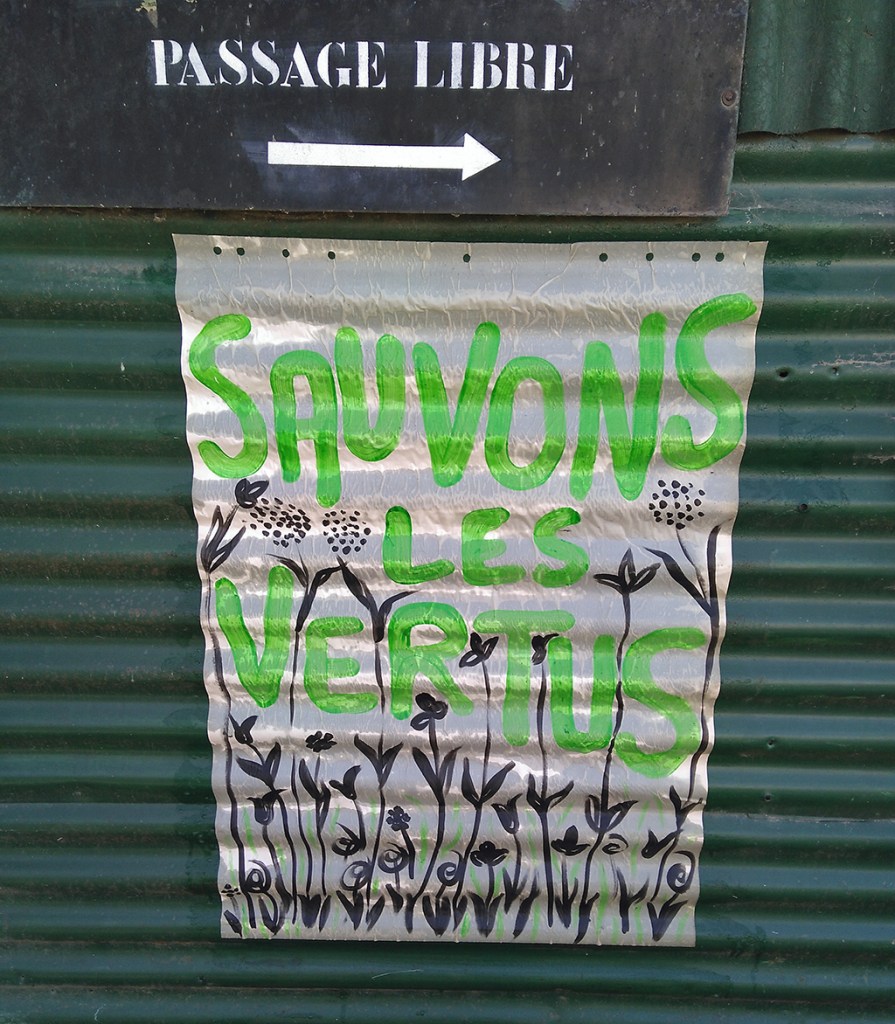 PASSAGE LIBRE
SAUVONS
LES
VERTUS